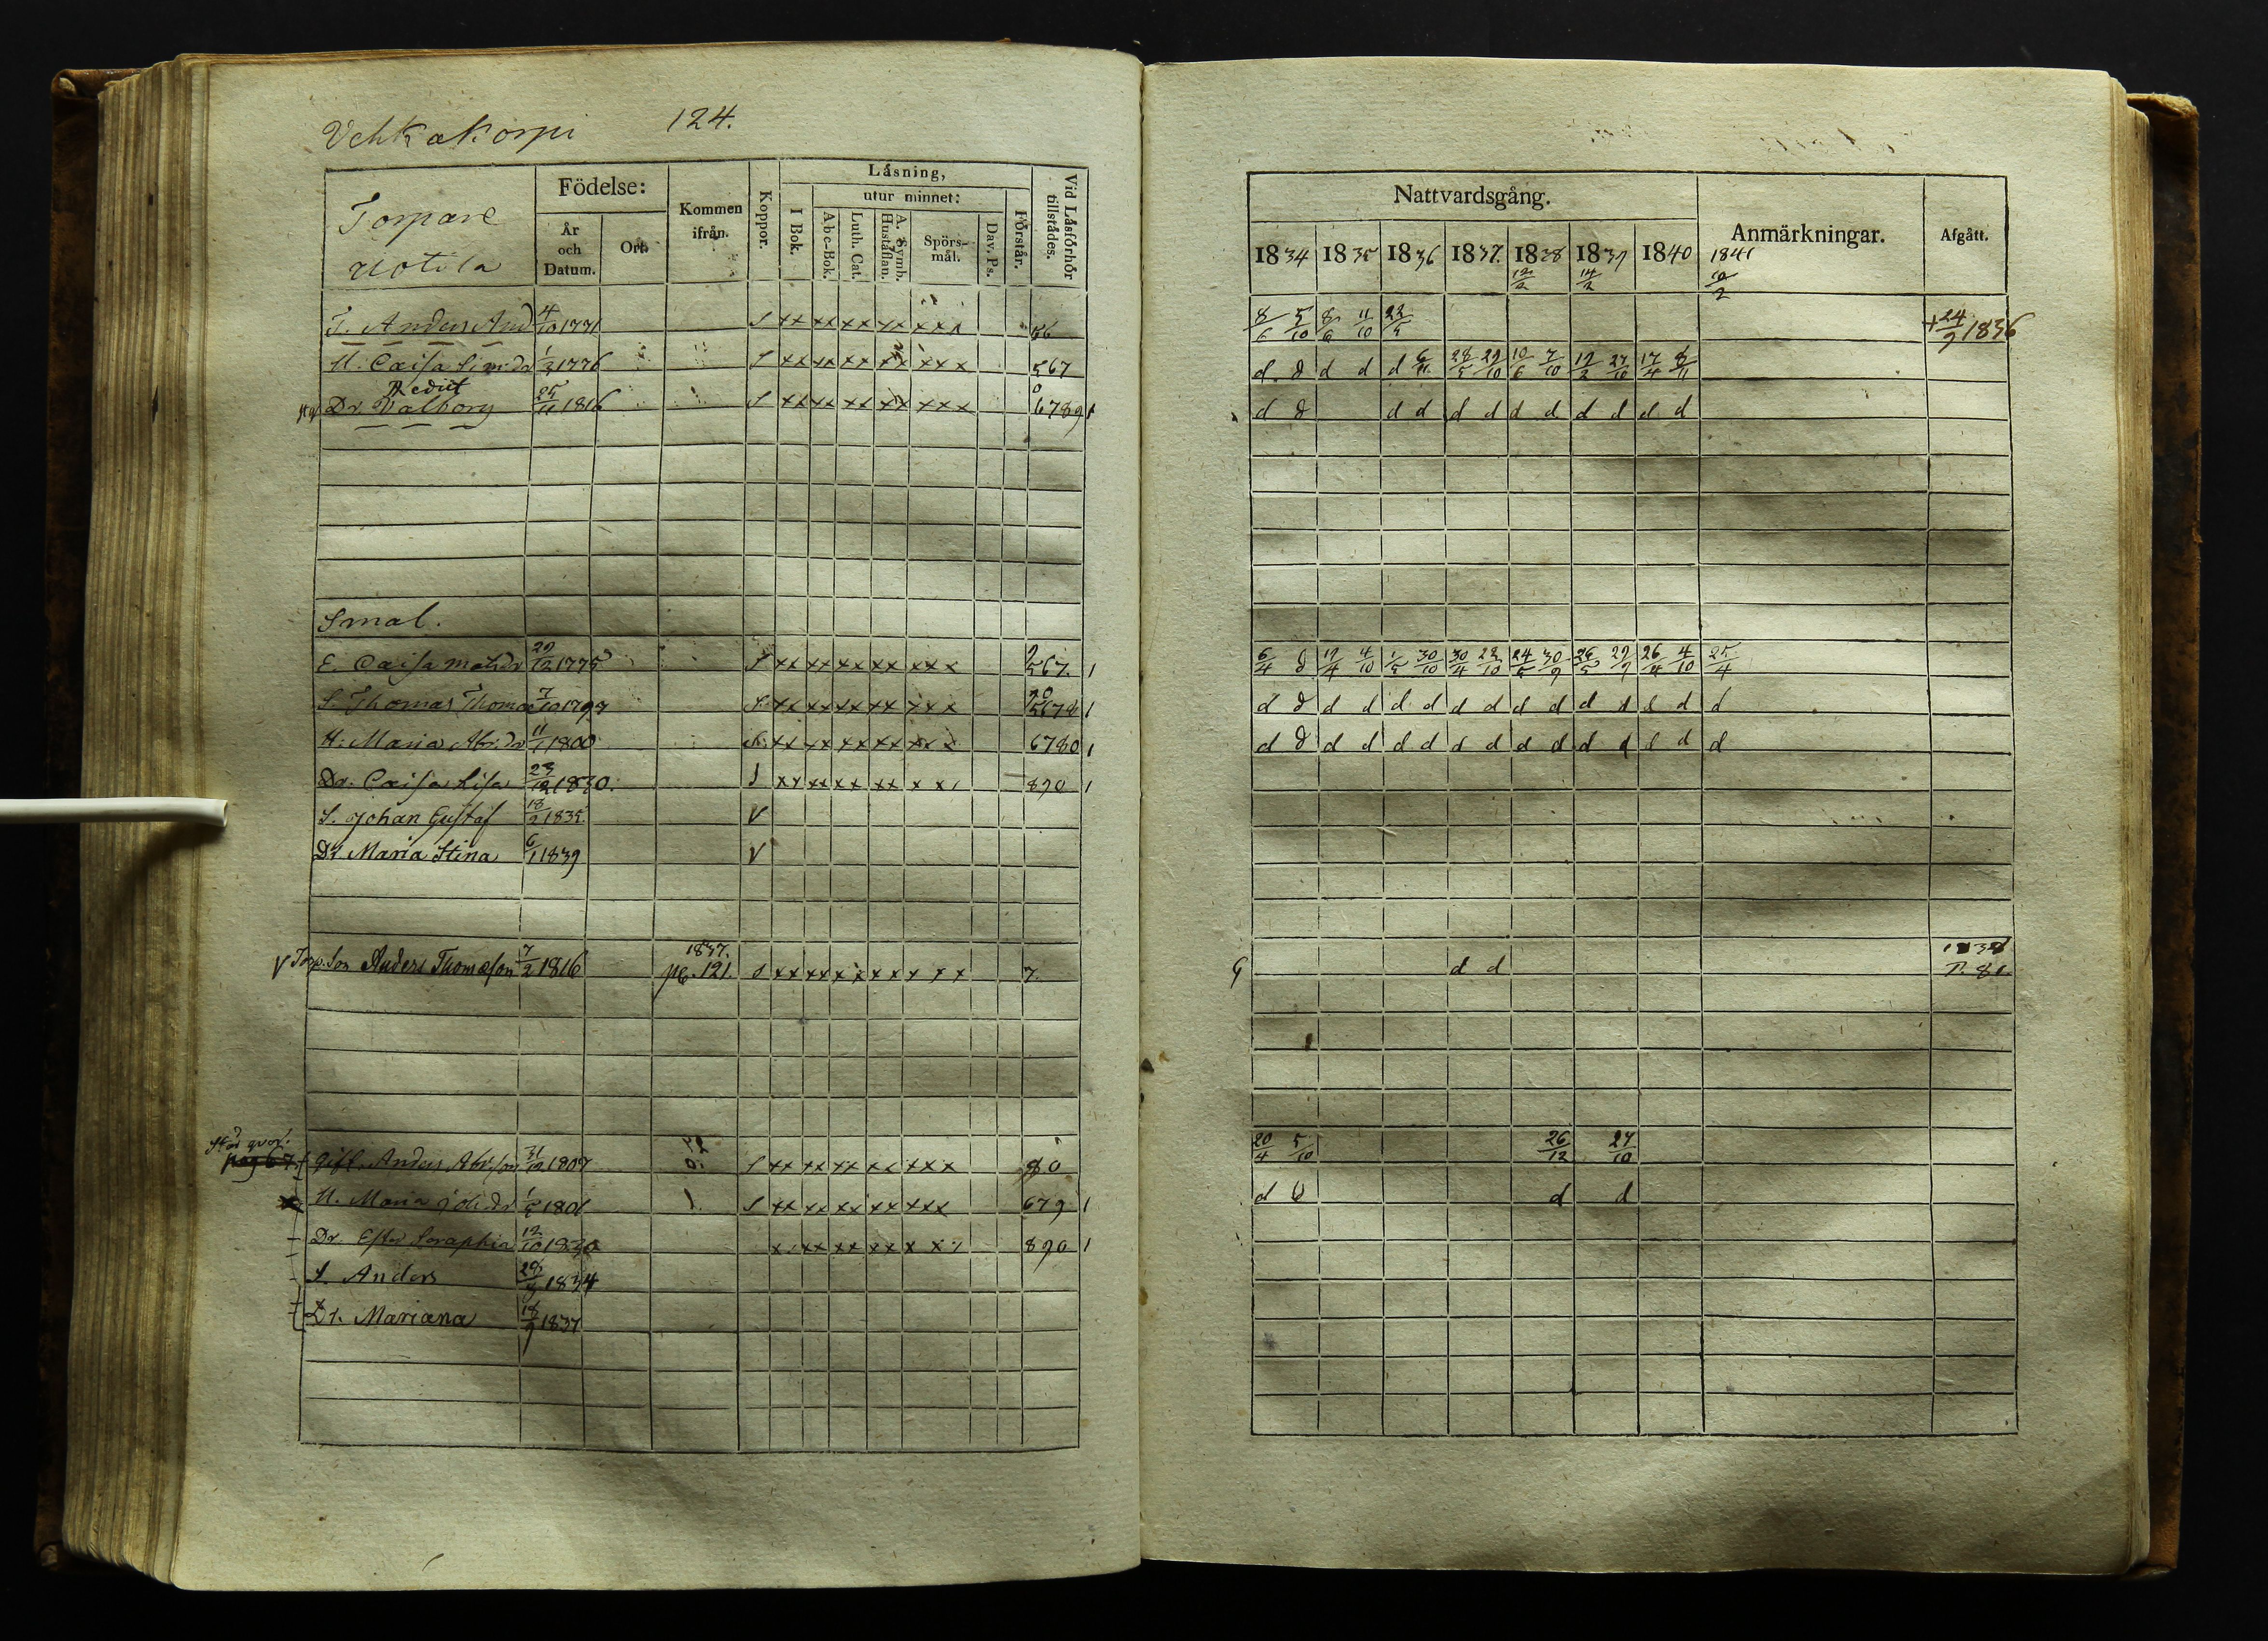 Vehkakorpi 124.
Torpare
Uotila
Födelse:
År och Datum.
Ort.
Kommen ifrån.
Koppor.
Läsning,
utur minnet:
I Bok.
Abc-Bok.
Luth. Cat.
A. Symb. Hustaflan.
Spörs-mål.
Dav. Ps.
Förstår.
Vid Läsförhör tillstådes.
T. Anders And 4/10 1771 S xx xx xx xx xxx 56
H. Caisa Sim:dr 1/3 1776 S xx xx xx xx xxx 567
Rediit
Dr. Valborg 25/11 1816 S xx xx xx xx xxx 6789 1
Smal.
E. Caisa Mats:dr 29/12 1775 S xx xx xx xx xxx 567. 1
S. Thomas Thomas 7/10 1797 S xx xx xx xx xxx 5678 1
H. Maria Abr:dr 11/1 1800 xx xx xx xx xxx 6780 1
Dr. Caisa Lisa 23/12 1830. S xx xx xx xx x x 890 1
S. Johan Gustaf 18/2 1835. V
Dr Maria Stina 6/1 1839 V
V Torp. Son Anders Thomasson 7/2 1816 1837. pg. 121. xx xx xx xx x x x 7.
pag 67
Gift. Anders Abr:son 31/12 1807 S xx xx xx xx xxx 80
H. Maria Joh:dr 1801 1. S xx xx xx xx xxx 679 1
Dr. Ester Seraphia 12/10 1830 890 1
S. Anders 28/9 1834
Dr. Mariana 18/9 1837
Nattvardsgång.
Anmärkningar.
Afgått.
1834 1835 1836 1837. 1838 12/2 1839 14/2 1840 1841 10/2
8/6 5/10 8/6 11/10 22/5 +24/9 1836
d d d d d 6/11 28/5 29/10 10/6 7/10 12/2 27/10 17/4 8/11
d d d d d d d d d d d d
6/4 d 12/4 4/10 1/5 30/10 30/4 22/10 24/5 30/9 26/5 29/9 26/4 4/10 25/4
d d d d d d d d d d d d d d d
d d d d d d d d d d d d d d d
G d d 1838 P. 81.
20/4 5/10 26/12 27/10
d d d d